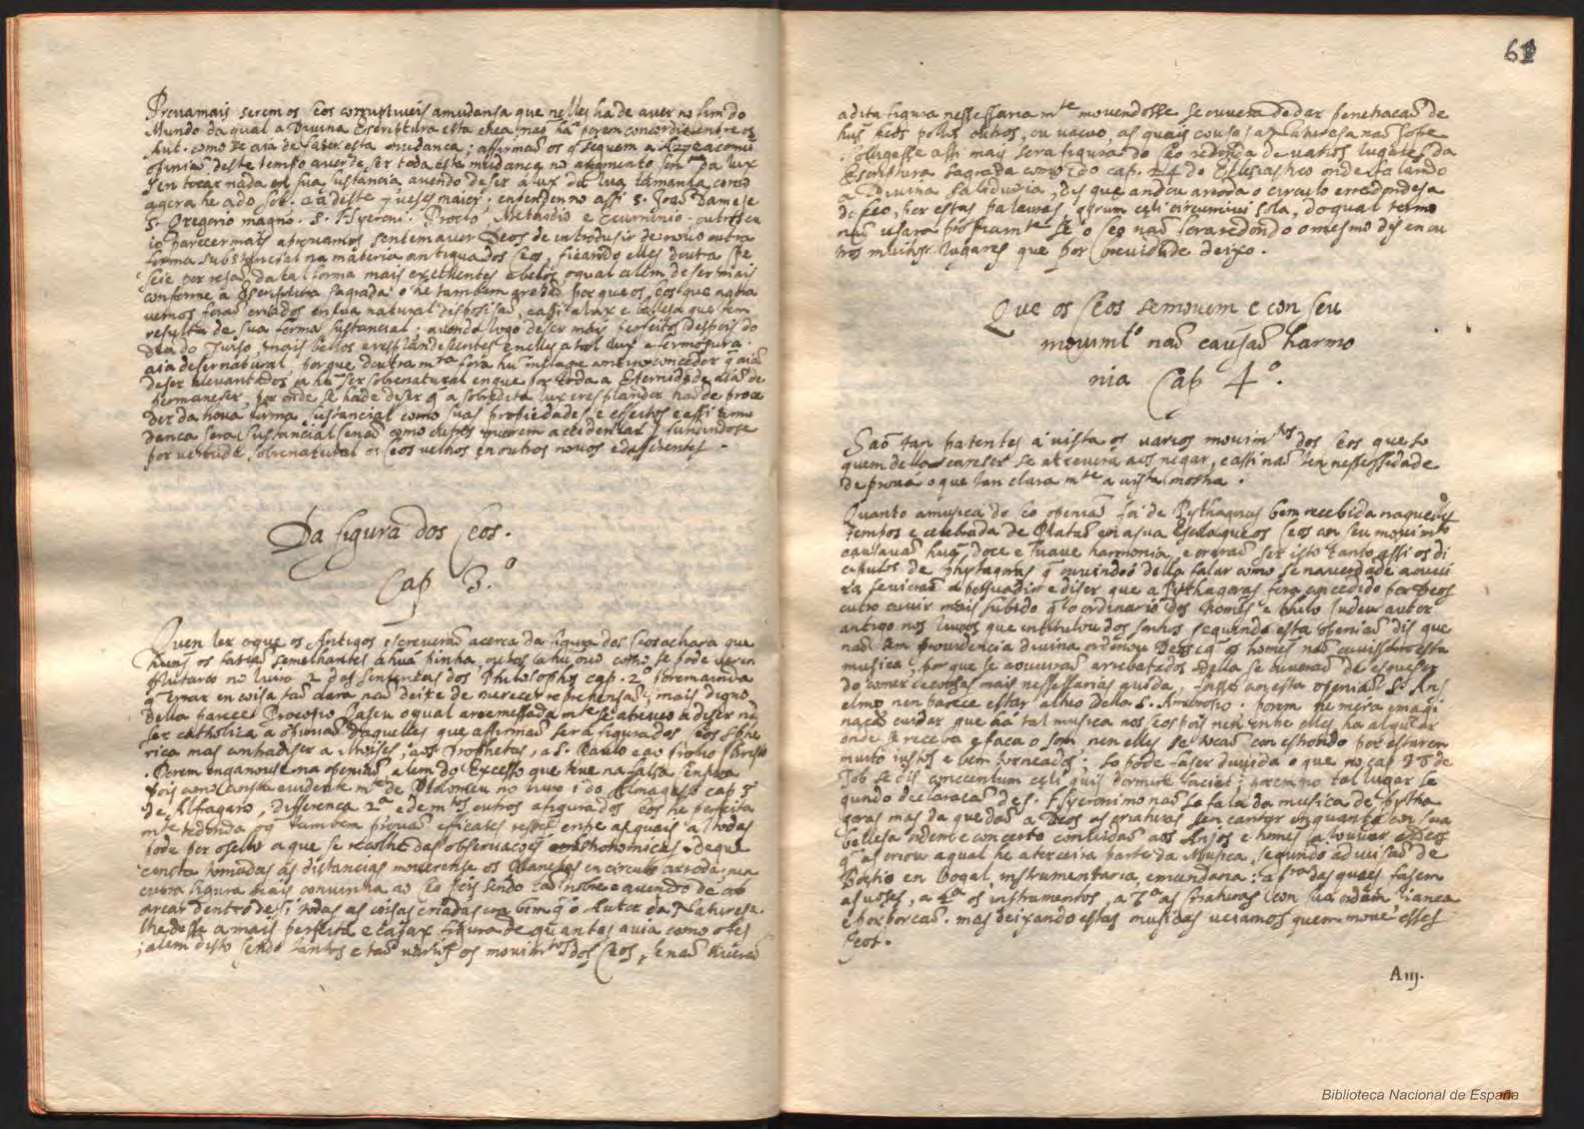 Prouamais serem os Ceos corruptiueis amudansa que nelles ha de auer no fim do
Mundo da qual a Diuina Escriptura esta chea; naõ ha porem concordia entre os
Aut. como se aia de faser esta mudanca; affirmaõ os q̃ seguem a
opiniaõ deste tempo auer de ser toda esta mudanca no augmento da lux
sen tocar nada en sua sustancia, auendo de ser a lux da lua tamanha como
agora he a do sol. e a deste 7 ueses maior; entenden no assi S. Joaõ Damase
S. Gregorio magno. S. Hyeroni. Proclo, Metardio e Ecumenio. outros cu
io parecer mais aprouamos sentem auer Deos de introdusir de nouo outra
forma substancial na materia antigua dos Ceos, ficando elles doutra spe
seie por resaõ da tal forma mais exsellentes e belos o qual alem de ser mais
conforme a Escriptura sagrada o he tambem porque os Ceos que agora
uemos foraõ criados en sua natural disposisaõ, e assi a lux e bellesa que tem
resulta de sua forma sustancial; auendo logo de ser mais perfeitos despois do
dia do Juiso, mais bellos e resplandesentes enelles a tal lux e fermosura
aia de ser natural, porque doutra mtᵃ fora hũ milagre continuo conceder q̃ aiaõ
de ser aleuantados a hũ ser sobrenatural en que por toda a Eternidade aiaõ de
permaneser, por onde se ha de diser q̃ a sobredita lux e resplandor ha de proce
der da noua forma sustancial como suas propiedades, e effeitos e assi a mu
danca sera sustancial e naõ como outros querem accidental mudandose
por uertude sobrenatural os Ceos uelhos en outros nouos e differentes.
Da figura dos Ceos.
Cap 3.º
Quen ler o que os Antigos escreueraõ acerca da figura dos Ceos achara que
huns os fasiaõ semelhantes a huã pinha, outros a hu ouo como se pode uer en
Plutarco no liuro 2 das sentencas dos Philosophos cap. 2.º porem ainda
q̃ errar en coisa taõ clara naõ deixe de mereser reprehensaõ; mais digno
della parece Procopio Gaseu o qual arremessada mᵗᵉ se atreueo a diser naõ
ser catholica a opiniaõ daquelles que affirmaõ ser a figura dos Ceos Sphe
rica mas contradiser a Moises, aos Prophetas, a S. Paulo e ao proprio Christo
. Porem enganouse na opiniaõ alem do Excesso que teue na falsa sensura
pois como consta euidente mᵗᵉ de Ptolomeu no liuro 1 do Almagesto cap 3
de Alfagano, differenca 2ª e de mᵗᵒˢ outros a figura dos Ceos he perfeita
mᵗᵉ redonda o q̃ tambem prouaõ efficases resoẽs entre as quais a todas
pode por o sello a que se recolhe das obseruacoẽs Astronomicas de que
consta tomadas as distancias mouerense os Planetas en circulo a roda; nen
outra figura mais conuinha ao Ceo pois sendo taõ nobre e auendo de ab
arcar dentro de si todas as coisas criadas era bem q̃ o Autor da Naturesa
lhe desse a mais perfeita e capax figura de quantas auia como o fes
; alem disto sendo tantos e taõ uarios os mouimᵗᵒˢ dos Ceos, se naõ tiueraõ
61
adita figura nessessaria mᵗᵉ mouendosse se ouuera de dar penetracaõ de
huns Ceos polos outros, ou uacuo, as quais cousas a naturesa naõ sofre
. Colligesse assi mais ser a figura do Ceo redonda de uarios lugares da
Escriptura sagrada como he do cap. 24 do Eclesiastico onde falando
a Diuina sabiduria, dis que andou a roda o circulo e redondesa
do Ceo, por estas palauras, gyrum cęli circuiui sola, do qual termo
naõ usara propriamᵗᵉ se o Ceo naõ fora redondo o mesmo dis en ou
tros muitos lugares que por breuidade deixo.
Que os Ceos semouem e con seu
mouimᵗᵒ naõ causaõ harmo
nia Cap 4º.
Saõ tan patentes á uista os uarios mouimᵗᵒˢ dos Ceos que so
quem della careser se atreuera aos negar, e assi naõ ten nessessidade
de proua o que tan clara mᵗᵉ a uista mostra.
Quanto amusica do Ceo opiniaõ foi de Pythagoras bem recebida naquelles
tempos e celebrada de Plataõ en a sua Escola que os Ceos con seu mouimᵗᵒ
causauaõ huã doce e suaue harmonia, e criaõ ser isto tanto assi os di
cipulos de phytagoras q̃ ouuindoo della falar como se na uerdade a ouui
ra se uieraõ a persuadir e diser que a Pythagoras fora concedido por Deos
outro ouuir mais subido q̃ o ordinario dos homẽs e Philo Judeu autor
antigo nos liuros que intitulou dos sonhos seguindo esta opiniaõ dis que
naõ sem prouidencia diuina ordenou Deos q̃ os homẽs naõ ouuissem esta
musica; porque se a ouuiraõ arrebatados della se uieraõ a esqueser
do comer e cousas mais nessessarias a uida, passe con esta opiniaõ S. Ans
elmo nen parece estar alheo della S. Ambrosio. porem he mera imagi
nacaõ cuidar que ha tal musica nos Ceos pois nen entre elles ha algũ ar
onde se receba e faca o som nen elles se tocaõ con estrondo por estarem
muito iustos e bem torneados; so pode faser duuida o que no cap 38 de
Job se dis, concentum cęli quis dormire faciet; porem no tal lugar se
gundo declaracaõ de S. Hyeronimo naõ se fala da musica de pytha
goras mas da que daõ a Deos as criaturas sen cantar enquanto con sua
bellesa ordem e concerto conuidaõ aos Anjos e homẽs a louuar a Deos
q̃ as criou a qual he a terceira parte da Musica, segundo a diuisaõ de
Boetio en Vogal, instrumentaria, e mundana: a pʳᵃ das quais fasem
as uoses, a 2ª os instrumentos, a 3ª as criaturas con sua ordem, liança
e proporcaõ. mas deixando estas musicas ueiamos quem moue esses
Ceos.
A iij.
Biblioteca Nacional de España